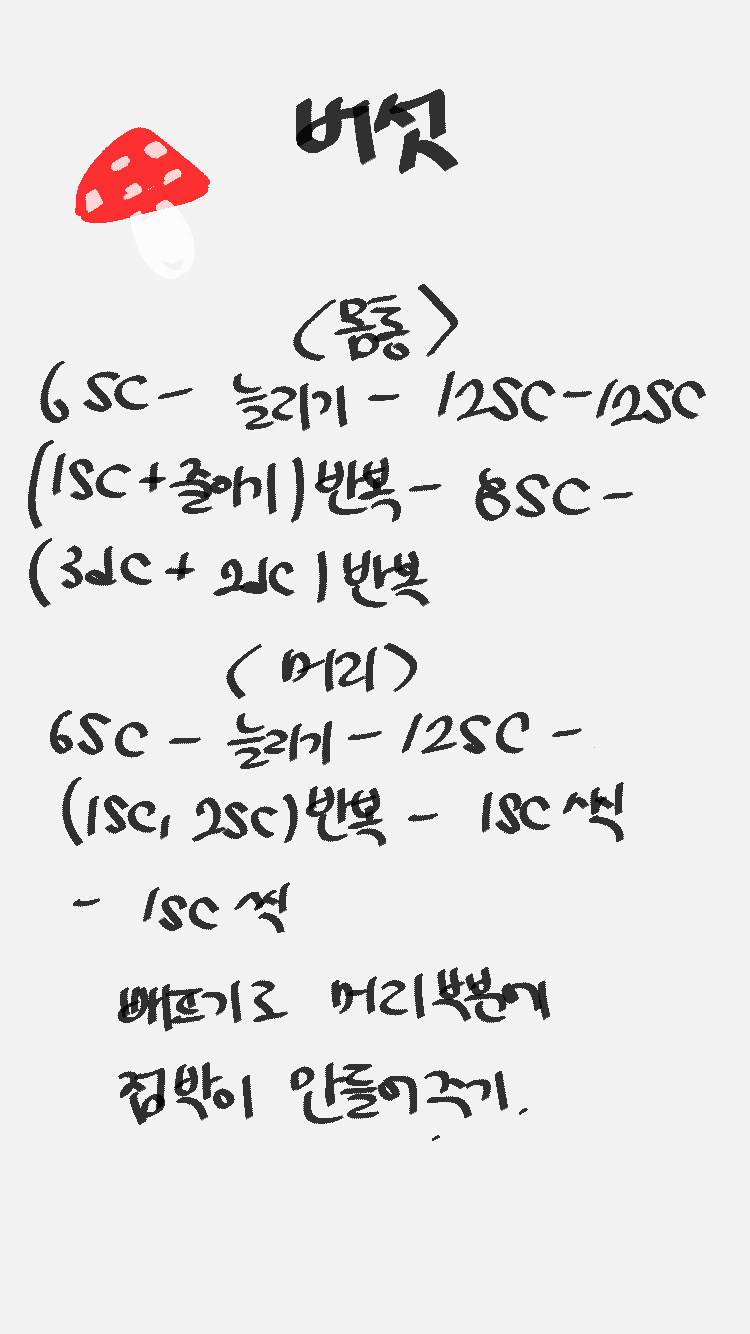 버섯
<몸통>
6SC - 늘리기 - 12SC - 12SC
(1SC + 줄여기) 반복 - 8SC -
(3dC + 2dC) 반복
<머리>
6SC - 늘리기 - 12SC -
(1SC, 2SC) 반복 - 1SC 씩
- 1SC 씩
빼뜨기로 머리부분에
점박이 만들어주기.